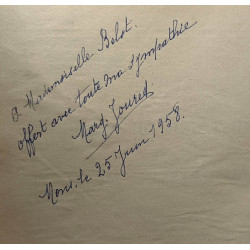 A Mademoiselle Belot.
offert avec toute ma sympathie
Marg. Jouret
Mons, le 25 Juin 1958.